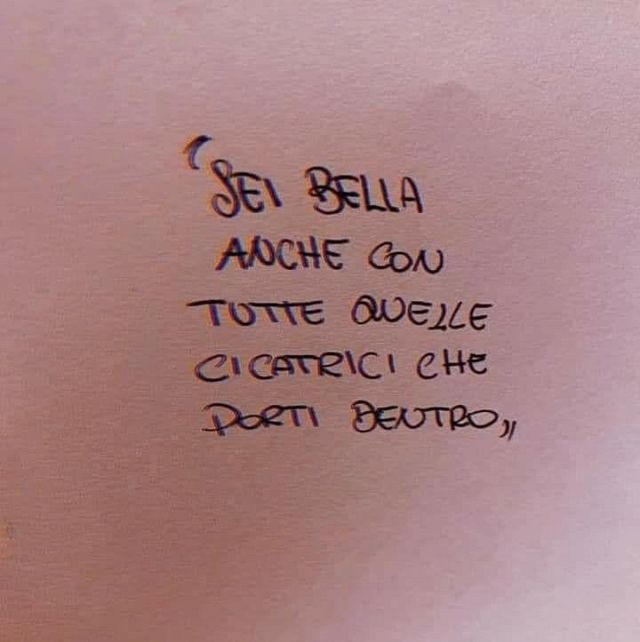 "SEI BELLA
ANCHE CON
TUTTE QUELLE
CICATRICI CHE
PORTI DENTRO"